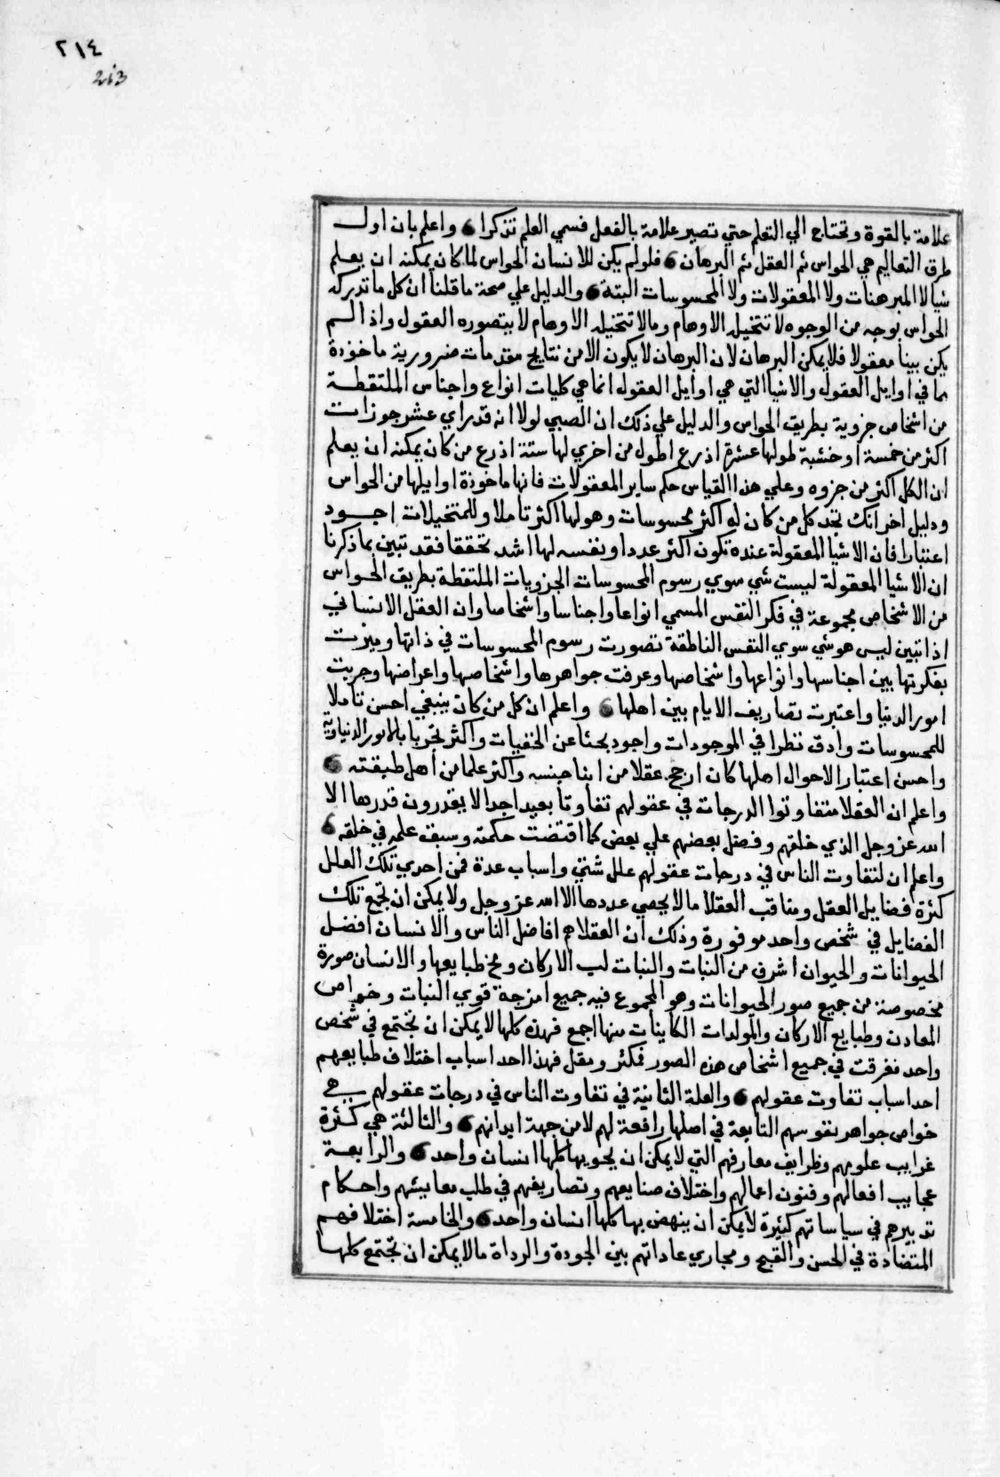 ٢١٤
213
علامة بالقوة وتحتاج الي التعلم حتي تصير علامة بالفعل فسمي العلم تذكرا واعلم بان اول
طرق التعاليم هي الحواس ثم العقل ثم البرهان فلولم يكن للانسان الحواس لما كان يمكنه ان يعلم
شيا لا المبرهنات ولا المعقولات ولا المحسوسات البتة والدليل علي صحة ما قلنا ان كل ما تدركه
الحواس بوجه من الوجوه لا تتخيله الاوهام وما لا تتخيله الاوهام لا يتصوره العقول واذا لم
يكن بينا معقولا فلا يمكن البرهان لان البرهان لا يكون الا من نتايج مقدمات ضرورية ماخوذة
مما في اوايل العقول والاشيا التي هي اوايل العقول انما هي كليات انواع واجناس الملتقطة
من اشخاص جزوية بطريق الحواس والدليل علي ذلك ان الصبي لولا انه قد راي عشر جوزات
اكثر من خمسة او خشبة طولها عشرة اذرع اطول من اخري لها ستة اذرع من كان يمكنه ان يعلم
ان الكل اكثر من جزوه وعلي هذا القياس حكم ساير المعقولات فانها ماخوذة اوايلها من الحواس
ودليل اخر انك تجد كل من كان له اكثر محسوسات وهو لها اكثر تاملا وللمتخيلات اجود
اعتبارا فان الاشيا المعقولة عنده تكون اكثر عددا ونفسه لها اشد تحققا فقد تبين بما ذكرنا
ان الاشيا المعقولة ليست شي سوي رسوم المحسوسات الجزويات الملتقطة بطريق الحواس
من الاشخاص مجموعة في فكر النفس المسمي انواعا واجناسا واشخاصا وان العقل الانساني
اذا تبين ليس هو شي سوي النفس الناطقة تصورت رسوم المحسوسات في ذاتها وميزت
بفكرتها بين اجناسها وانواعها واشخاصها وعرفت جواهرها واشخاصها واعراضها وجربت
امور الدنيا واعتبرت تصاريف الايام بين اهلها واعلم ان كل من كان ينبغي احسن تاملا
للمحسوسات وادق نظرا في الموجودات واجود بحثا عن الخفيات واكثر تجربا بالامور الدنياوية
واحسن اعتبارا لاحوال اهلها كان ارجح عقلا من ابنا جنسه واكثر علما من اهل طبقته
واعلم ان العقلا متفاوتوا الدرجات في عقولهم تفاوتا بعيدا جدا لا يقدرون قدرها الا
الله عز وجل الذي خلقهم وفضل بعضهم علي بعض كما اقتضت حكمته وسبق علمه في خلقه
واعلم ان لتفاوت الناس في درجات عقولهم علل شتي واسباب عدة فمن احدي تلك العلل
كثرة فضايل العقل ومناقب العقلا ما لا يحصي عددها الا الله عز وجل ولا يمكن ان تجمع تلك
الفضايل في شخص واحد موفورة وذلك ان العقلا هم افاضل الناس والانسان افضل
الحيوانات والحيوان اشرف من النبات والنبات لب الاركان ومخ طبايعها والانسان صورة
مخصوصة من جميع صور الحيوانات وهو المجموع فيه جميع امزجة قوي النبات وخواص
المعادن وطبايع الاركان والمولدات الكاينات منها اجمع فهذه كلها لا يمكن ان تجتمع في شخص
واحد تفرقت في جميع اشخاص هذه الصور فمكثر ومقل فهذا احد اسباب اختلاف طبايعهم
احد اسباب تفاوت عقولهم والعلة الثانية في تفاوت الناس في درجات عقولهم هي
خواص جواهر نفوسهم التابعة في اصلها رافعة لهم لا من جهة ابدانهم والثالثة هي كثرة
غرايب علومهم وظرايف معارفهم التي لا يمكن ان يحويها كلها انسان واحد والرابعة
عجايب افعالهم وفنون اعمالهم واختلاف صنايعهم وتصاريفهم في طلب معايشهم واحكام
تدبيرهم في سياساتهم كثيرة لا يمكن ان ينهض بها كلها انسان واحد والخامسة اختلافهم
المتضادة في الحسن والقبح ومجاري عاداتهم بين الجودة والرداة ما لا يمكن ان تجتمع كلها